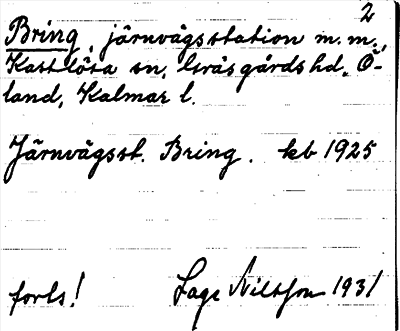 2
Bring, järnvägsstation m.m.,
Kastlösa sn, Gräsgårds hd, Ö-
land, Kalmar l.
Järnvägsst. Bring. kb 1925
forts! Lage Nilsson 1931